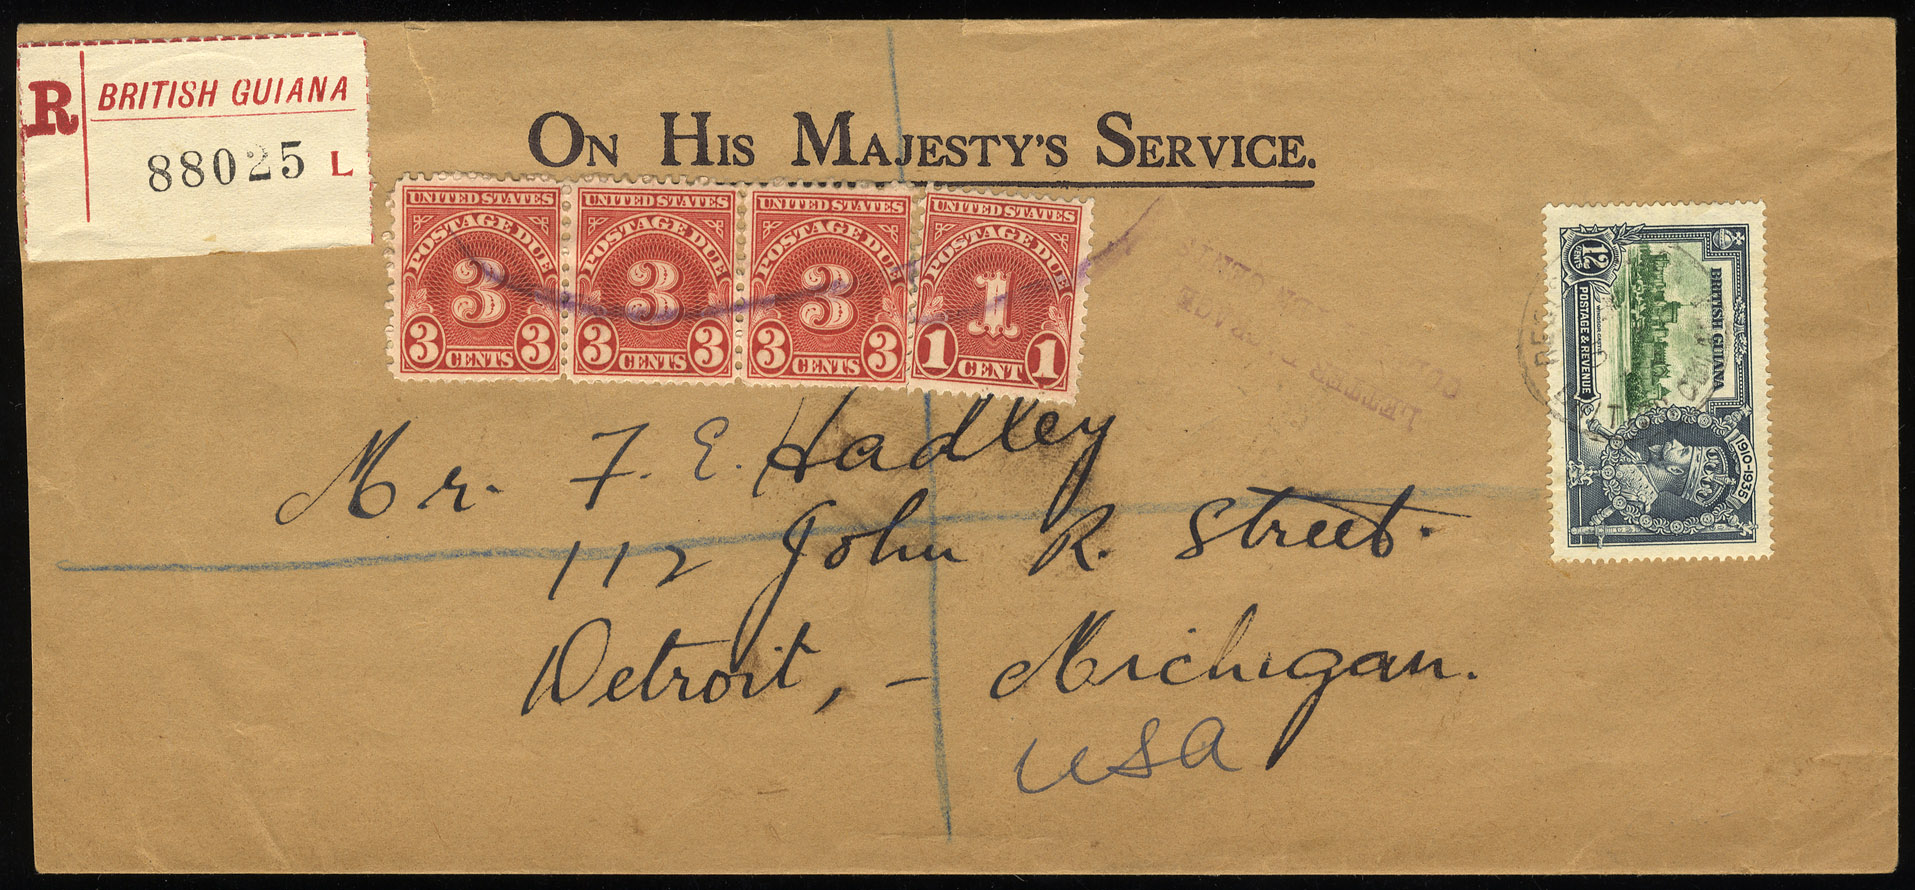 R BRITISH GUIANA
88025 L
ON HIS MAJESTY'S SERVICE.
UNITED STATES
POSTAGE DUE
3
3 CENTS 3
UNITED STATES
POSTAGE DUE
3
3 CENTS 3
UNITED STATES
POSTAGE DUE
3
3 CENTS 3
UNITED STATES
POSTAGE DUE
1
1 CENT 1
12
CENTS
POSTAGE & REVENUE
WINDSOR CASTLE
BRITISH GUIANA
1910-1935
LETTER
CENTS
Mr. F. E. Hadley
112 John R. Street.
Detroit, - Michigan.
USA